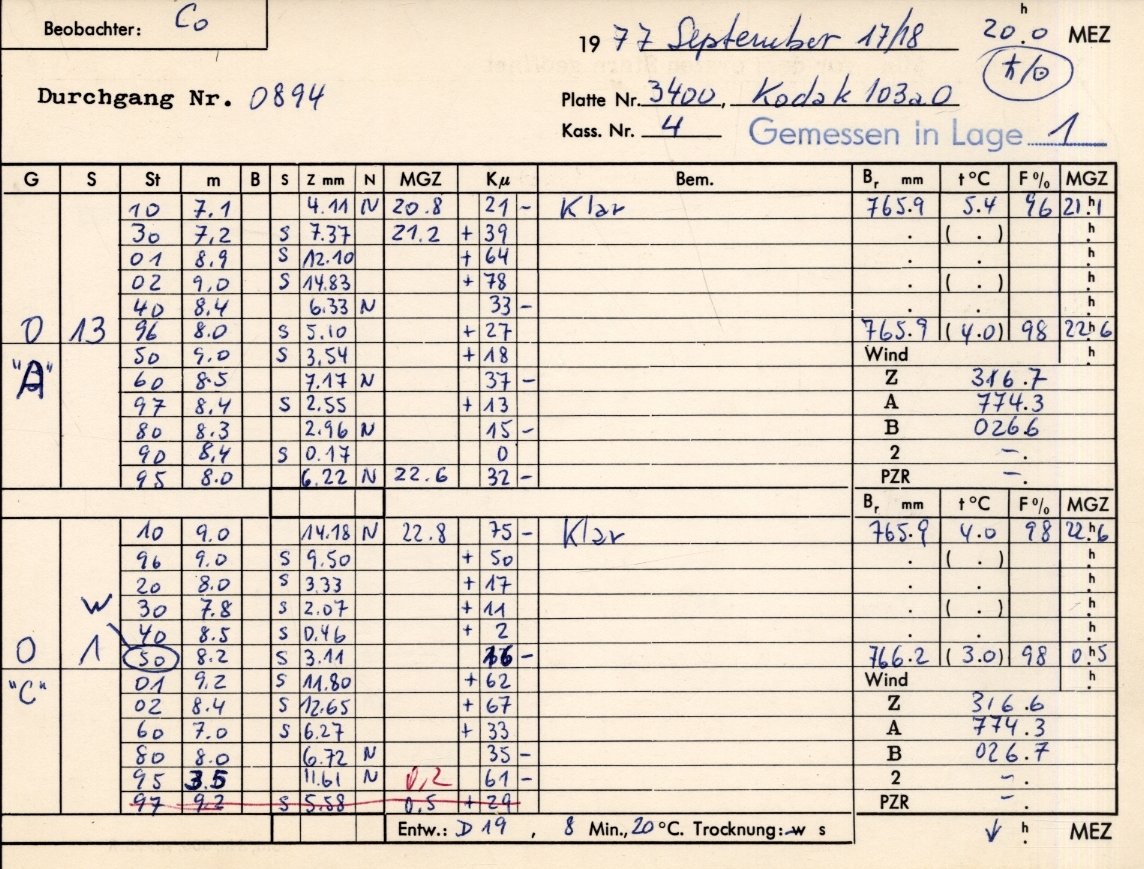 Beobachter: Co
1977 September 17/18 20.0 h MEZ
Durchgang Nr. 0894
Platte Nr. 3400, Kodak 103aO
Kass. Nr. 4 Gemessen in Lage 1
G S St m B S Z mm N MGZ Kµ Bem. Br mm t °C F % MGZ
10 7.1 4.11 N 20.8 21 - Klar 765.9 5.4 96 21.h1
30 7.2 S 7.37 21.2 + 39 . ( . ) .h
01 8.9 S 12.10 + 64 . . .h
02 9.0 S 14.83 + 78 . ( . ) .h
40 8.4 6.33 N 33 - . . .h
0 13 96 8.0 S 5.10 + 27 765.9 (4.0) 98 22.h6
"A" 50 9.0 S 3.54 + 18 Wind h
60 8.5 7.17 N 37 - Z 316.7
97 8.4 S 2.55 + 13 A 774.3
80 8.3 2.96 N 15 - B 026.6
90 8.4 S 0.17 0 2 -.
95 8.0 6.22 N 22.6 32 - PZR -.
Br mm t °C F % MGZ
10 9.0 14.18 N 22.8 75 - Klar 765.9 4.0 98 22.h6
96 9.0 S 9.50 + 50 . ( . ) .h
20 8.0 S 3.33 + 17 . . .h
W 30 7.8 S 2.07 + 11 . ( . ) .h
40 8.5 S 0.46 + 2 . . .h
0 1 50 8.2 S 3.11 16 - 766.2 (3.0) 98 0.h5
"C" 01 9.2 S 11.80 + 62 Wind .h
02 8.4 S 12.65 + 67 Z 316.6
60 7.0 S 6.27 + 33 A 774.3
80 8.0 6.72 N 35 - B 026.7
95 3.5 11.61 N 0.2 61 - 2 -.
97 9.2 S 5.58 0.5 + 29 PZR -.
Entw.: D 19, 8 Min., 20 °C. Trocknung: w s h MEZ